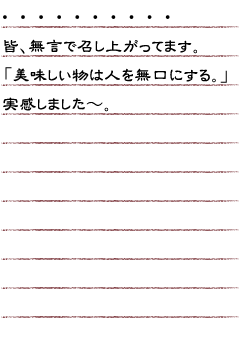 ・・・・・・・・・・
皆、無言で召し上がってます。
「美味しい物は人を無口にする。」
実感しました～。